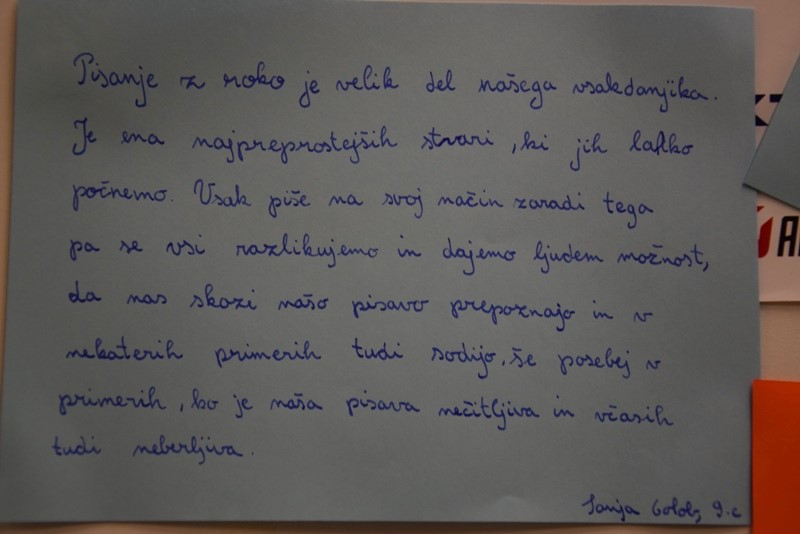 Pisanje z roko je velik del našega vsakdanjika.
Je ena najpreprostejših stvari, ki jih lahko
počnemo. Vsak piše na svoj način zaradi tega
pa se vsi razlikujemo in dajemo ljudem možnost,
da nas skozi našo pisavo prepoznajo in v
nekaterih primerih tudi sodijo, še posebej v
primerih, ko je naša pisava nečitljiva in včasih
tudi neberljiva.
Sanja Golob, 9.c